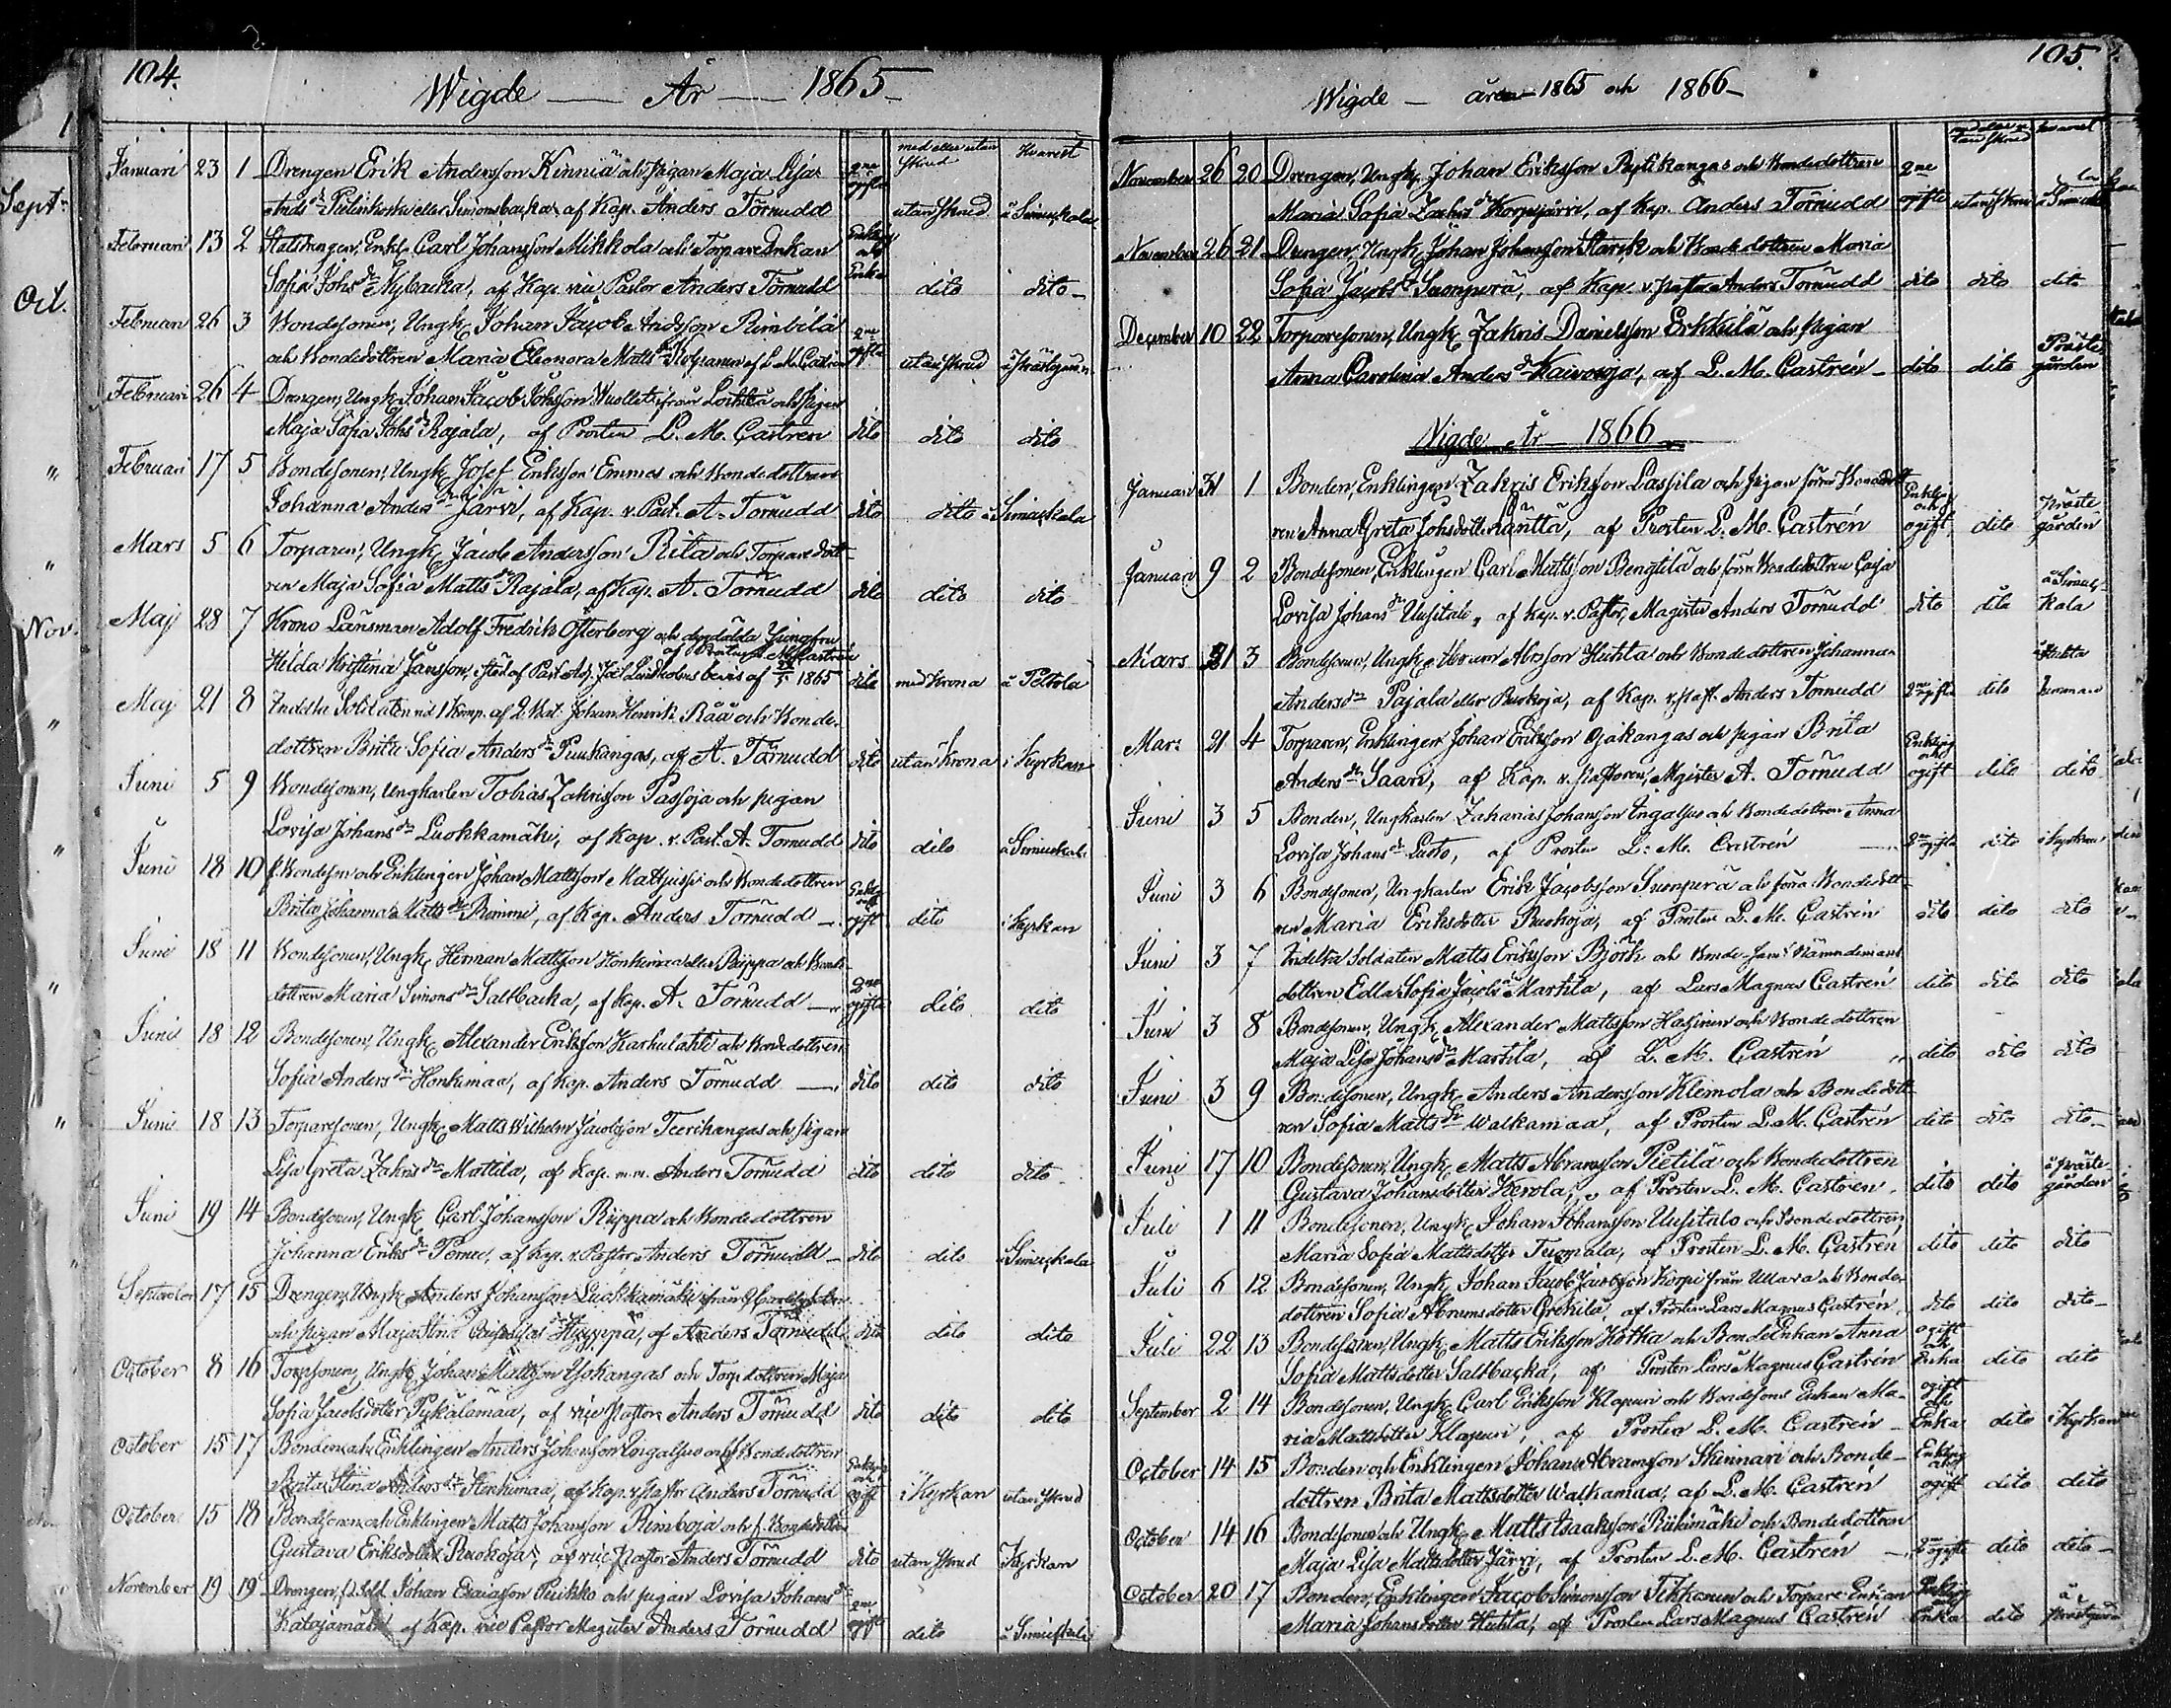 104.
Wigde — År — 1865
med eller utan skrud
Hvarest
Januari 23 1 Drengen Erik Andersson Kinnia och pigan Maja Lisa
Ands dr eller Simonsbacka af Kap. Anders Törnudd 2ne ogifta utan skrud å Simuskala
Februari 13 2 Enkl. Carl Johansson Mikkola och Torpare Enkan
Sofia Johs dr Nybacka, af Kap. vice Pastor Anders Törnudd Enkling och Enka dito dito
Februari 26 3 Bondesonen, Ungk. Johan Jacob Andsson Rimbilä
och Bondedottren Maria Eleonora Matts dr af L. M. Castrén 2ne ogifta utan skrud å Prästgården
Februari 26 4 Drengen, Ungk. Johan Jacob Johsson Wuollet ifrån Lochteå och Pigan
Maja Sofia Johs dr Rajala, af Prosten L. M. Castrén dito dito dito
Februari 17 5 Bondesonen, Ungk. Josef Eriksson Emmes och Bondedottren
Johanna Anders dr Järvi, af Kap. v. Past. A. Törnudd dito dito å Simuskala
Mars 5 6 Torparen, Ungk. Jacob Andersson Rita och Torpare dott-
ren Maja Sofia Matts dr Rajala, af Kap. A. Törnudd dito dito dito
Maj 28 7 Krono Länsman Adolf Fredrik Österberg och dygdädla Jungfru
af Prosten L. M. Castrén
Hilda Kristina Jansson, af Past. Adj. Lindholms bevis af 1865 dito med krona å Peltola
Maj 21 8 Indelta Soldaten vid 1 Komp. af 2. Johan Henrik Råå och Bonde-
dottren Brita Sofia Anders dr Puukangas, af A. Törnudd dito utan krona i Kyrkan
Juni 5 9 Bondesonen, Ungkarlen Tobias Zakrisson Passoja och pigan
Lovisa Johans dr Luokkamäki, af Kap. v. Past. A. Törnudd dito dito å Simuskala
Juni 18 10 f. Bondeson och Enklingen Johan Mattsson Mattjussi och Bondedottren
Brita Johanna Matts dr Rimmi, af Kap. Anders Törnudd Enkling och ogift dito i Kyrkan
Juni 18 11 Bondesonen, Ungk. Herman Mattsson Honkimaa eller Pippa och Bonde-
dottren Maria Simons dr Saltbacka, af Kap. A. Törnudd 2ne ogifta dito dito
Juni 18 12 Bondesonen, Ungk. Alexander Eriksson Karhulahti och Bondedottren
Sofia Anders dr Honkimaa, af Kap. Anders Törnudd dito dito dito
Juni 18 13 Torparesonen, Ungk. Matts Wilhelm Jacobsson Teerikangas och pigan
Lisa Greta Zakris dr Mattila, af Kap. m.m. Anders Törnudd dito dito dito
Juni 19 14 Bondesonen, Ungk. Carl Johansson Rippa och Bondedottren
Johanna Eriks dr Perne, af Kap. v. Pastor Anders Törnudd dito dito å Simuskala
September 17 15 Drengen, Ungk. Anders Johansson Luokkamäki ifrån
och pigan Maja Stina Huppa, af Anders Törnudd dito dito dito
October 8 16 Torpsonen, Ungk. Johan Mattsson Ykskangas och Torp. dottren Maja
Sofia Jacobsdotter Pykälämaa, af vice Pastor Anders Törnudd dito dito dito
October 15 17 Bonden och Enklingen Anders Johansson Ingalsuo och f. Bondedottren
Brita Stina Anders dr Honkimaa, af Kap. v. Pastor Anders Törnudd Enkling och ogift i Kyrkan utan skrud
October 15 18 Bondesonen och Enklingen Matts Johansson Rimboja och f. Bondedottren
Gustava Eriksdotter Ruokoja, af vice Pastor Anders Törnudd dito utan skrud i Kyrkan
November 19 19 Drengen, f. d. Sold. Johan Esaiasson Peikko och pigan Lovisa Johans dr
Katajamäki af Kap. vice Pastor Magister Anders Törnudd 2ne ogifta dito å Simuskala
105.
Wigde — åren 1865 och 1866
med eller utan skrud
hvarest
November 26 20 Drengen, Ungk. Johan Eriksson och Bondedottren
Maria Sofia Zachris dr Korpijärvi, af Kap. Anders Törnudd 2ne ogifta utan skrud å Simuskala
November 26 21 Drengen, Ungk. Johan Johansson Starck och Bondedottren Maria
Sofia Jacobs dr Suonperä, af Kap. v. Pastor Anders Törnudd dito dito dito
December 10 22 Torparesonen, Ungk. Zakris Danielsson Erkkilä och pigan
Anna Carolina Anders dr Kaivooja, af L. M. Castrén dito dito Prästgården
Wigde År 1866
Januari 31 1 Bonden, Enklingen Zakris Eriksson Lassila och Pigan förra Bondedott-
ren Anna Greta Johsdotter Räntta, af Prosten L. M. Castrén Enkling och ogift dito Prästgården
Januari 9 2 Bondesonen, Enklingen Carl Mattsson Bengtilä och förra Bondedottren Cajsa
Lovisa Johans dr Uusitalo, af Kap. v. Pastor, Magister Anders Törnudd dito dito å Simuskala
Mars 31 3 Bondesonen, Ungk. Abram Abrsson Huhta och Bondedottren Johanna
Anders dr Pajala eller Ruokoja, af Kap. v. Past. Anders Törnudd 2ne ogifta dito
Mars 21 4 Torparen, Enklingen Johan Eriksson Ojakangas och pigan Brita
Anders dr Saari, af Kap. v. Pastoren, Magister A. Törnudd Enkling och ogift dito dito
Juni 3 5 Bonden, Ungkarlen Zakarias Johansson Ingalsuo och Bondedottren Anna
Lovisa Johans dr Lusto, af Prosten L. M. Castrén 2ne ogifta dito i Kyrkan
Juni 3 6 Bondesonen, Ungkarlen Erik Jacobsson Suonperä och förra Bondedott-
ren Maria Eriksdotter Ruokoja, af Prosten L. M. Castrén dito dito dito
Juni 3 7 Indelta Soldaten Matts Eriksson Björk och Bonde- samt Nämndemans
dottren Edla Sofia Jacobs dr Martila, af Lars Magnus Castrén dito dito dito
Juni 3 8 Bondesonen, Ungk. Alexander Mattsson Hassinen och Bondedottren
Maja Lisa Johans dr Martila, af L. M. Castrén dito dito dito
Juni 3 9 Bondesonen, Ungk. Anders Andersson Klemola och Bondedott-
ren Sofia Matts dr Walkamaa, af Prosten L. M. Castrén dito dito dito
Juni 17 10 Bondesonen, Ungk. Matts Abramsson Pietilä och Bondedottren
Gustava Johansdotter Kerola, af Prosten L. M. Castrén dito dito å Prästgården
Juli 1 11 Bondesonen, Ungk. Johan Johansson Uusitalo och Bondedottren
Maria Sofia Mattsdotter Tuomala, af Prosten L. M. Castrén dito dito dito
Juli 6 12 Bondesonen, Ungk. Johan Jacob Jacobsson Korpi från Ullava och Bonde-
dottren Sofia Abramsdotter Orchilä af Prosten Lars Magnus Castrén dito dito dito
Juli 22 13 Bondesonen, Ungk. Matts Eriksson Kotka och Bonde Enkan Anna
Sofia Mattsdotter Saltbacka, af Prosten Lars Magnus Castrén ogift och Enka dito dito
September 2 14 Bondesonen, Ungk. Carl Eriksson Klapuri och Bondesons Enkan Ma-
ria Mattsdotter Klapuri, af Prosten L. M. Castrén ogift och Enka dito i Kyrkan
October 14 15 Bonden och Enklingen Johan Abramsson Skinnari och Bonde-
dottren Brita Mattsdotter Walkamaa, af L. M. Castrén Enkling och ogift dito dito
October 14 16 Bondesonen och Ungk. Matts Isaaksson Riikimäki och Bondedottren
Maja Lisa Mattsdotter Järvi, af Prosten L. M. Castrén 2ne ogifte dito dito
October 20 17 Bonden, Enklingen Jacob Simonsson Tikkanen och Torpare Enkan
Maria Johansdotter Huhta, af Prosten Lars Magnus Castrén Enkling och Enka dito å Prästgården
Sept.
Oct.
Nov.